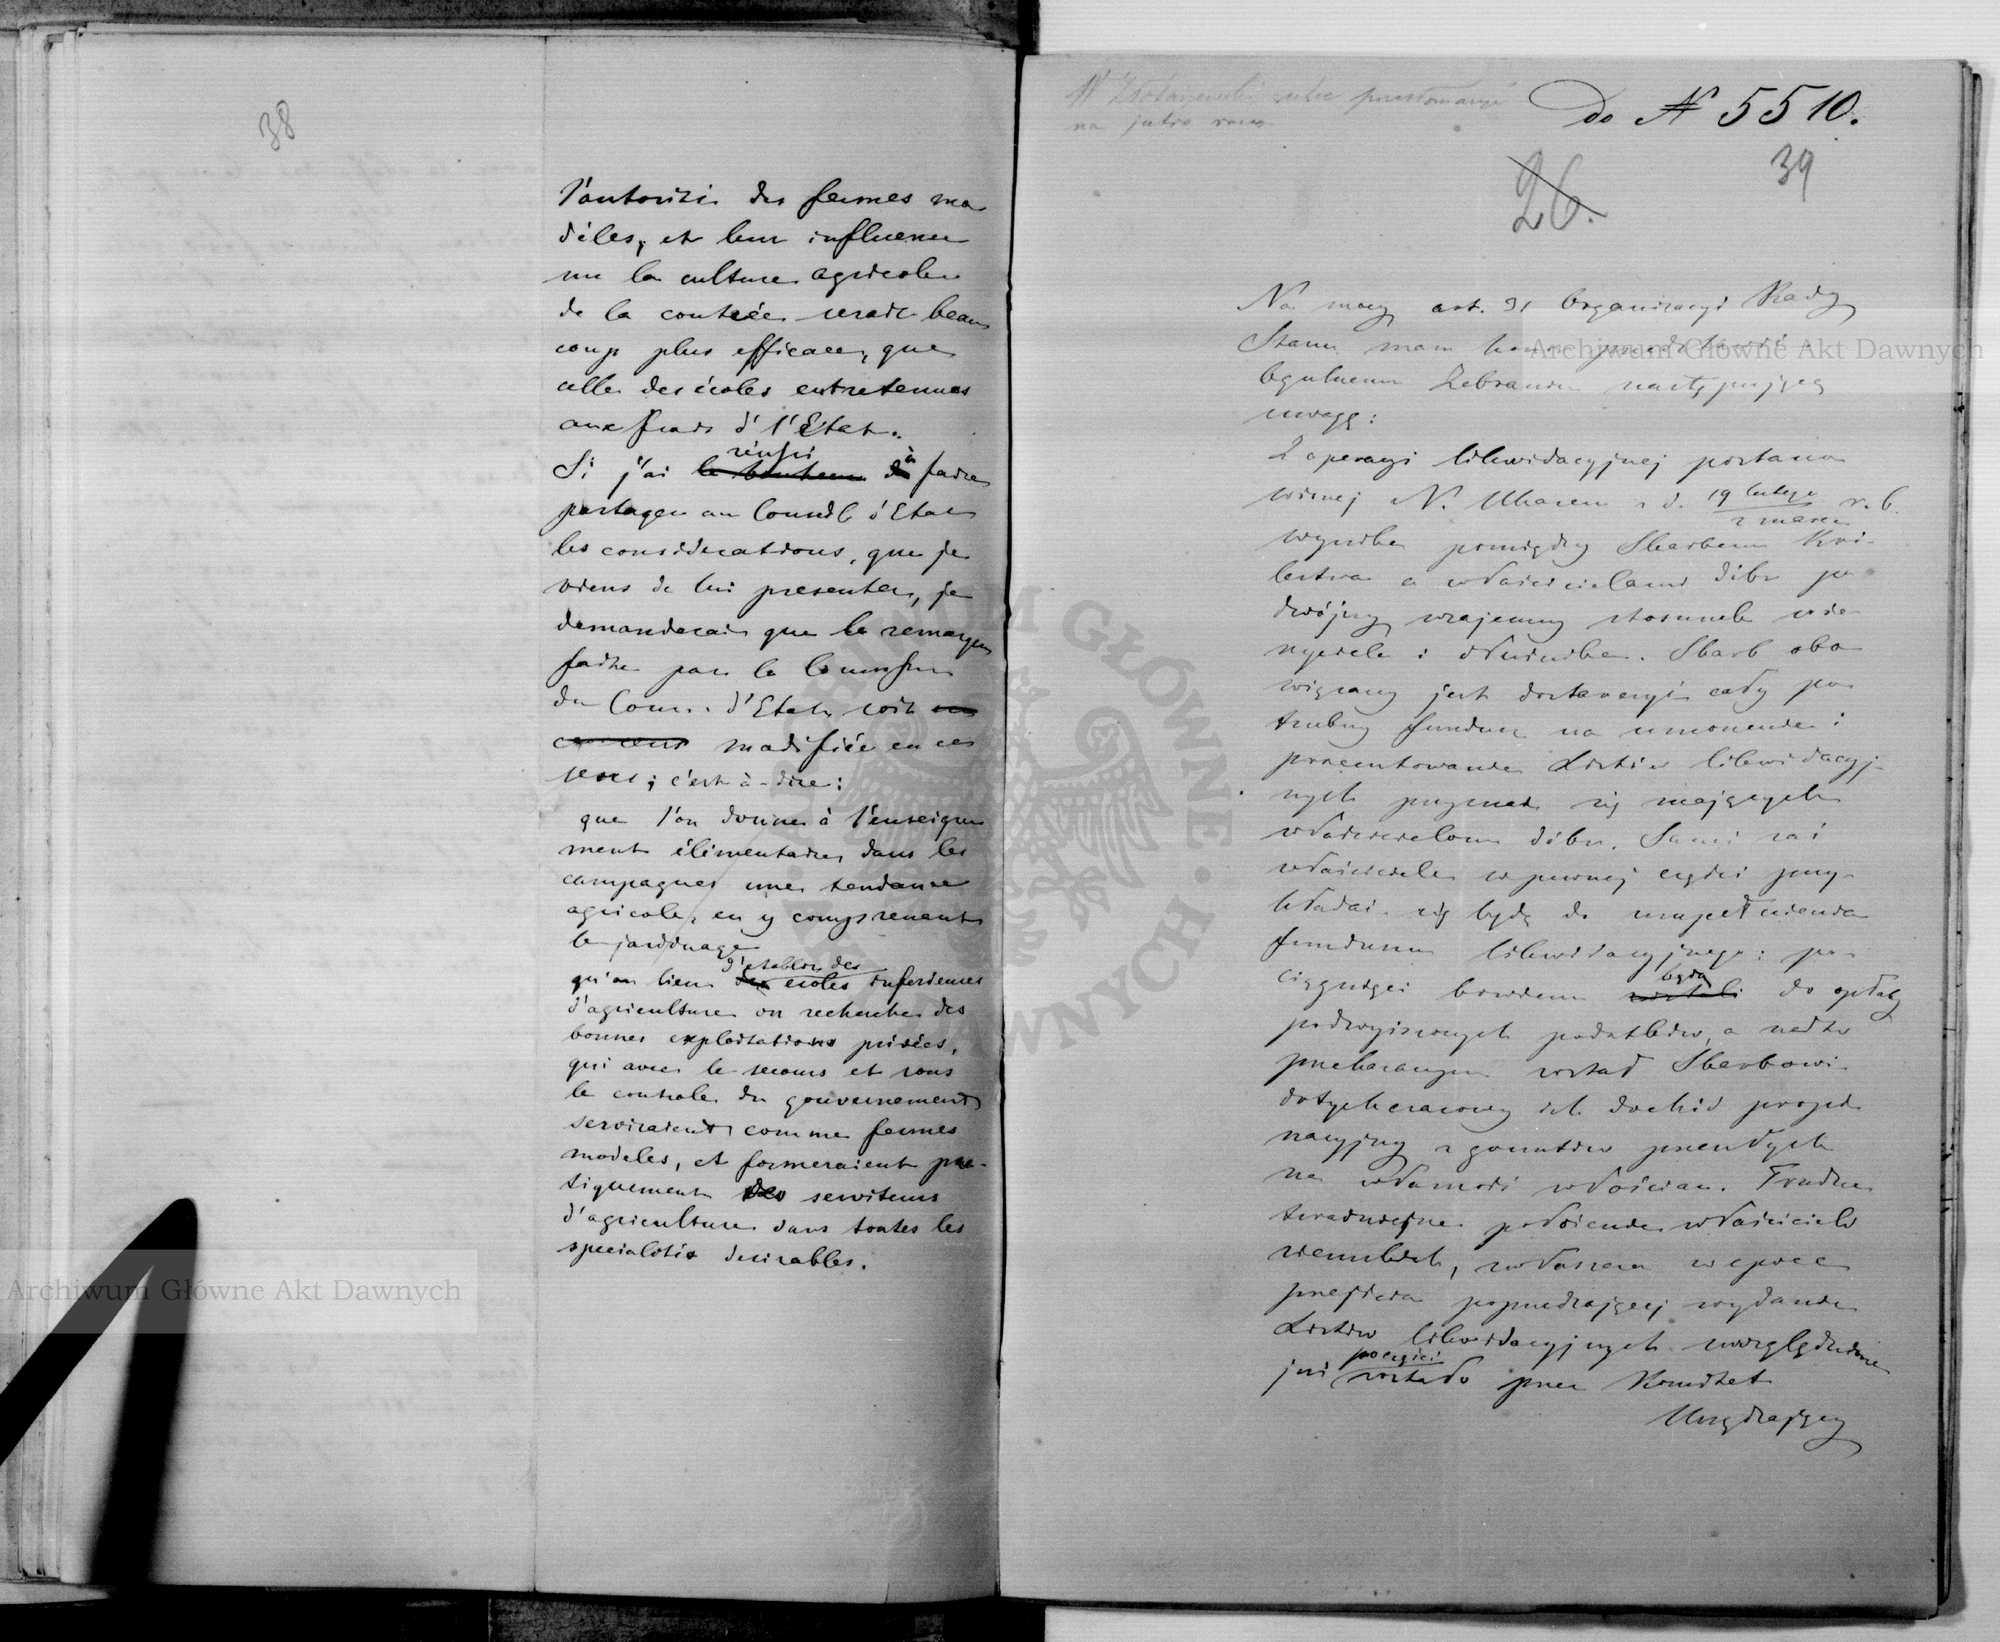 38
l'autorité des fermes mo
dèles, et leur influence
sur la culture agricole
de la contrée serait beau
coup plus efficace, que
celle des écoles entretenues
aux frais d' l'Etat.
réussi à
Si j'ai le bonheur de faire
partager au Conseil d'Etat
les considérations, que je
viens de lui presenter, je
demanderais que la remarque
faite par la
du Cons. d'Etat soit
modifiée en ces
sens; c'est à-dire:
que l'on donne à l'enseigne
ment élémentaire dans les
campagnes une tendance
agricole, en y comprenant
le jardinage
d'etablir des
qu'au lieu des ecoles inferieures
d'agriculture on recherche des
bonnes exploitations privées,
qui avec le secours et sous
le controle du gouvernement
serviraient comme fermes
modeles, et formeraient pra-
tiquement des serviteurs
d'agriculture dans toutes les
specialités desirables.
na jutro rano
do N 5510.
26.
39
Na mocy art. 31 Organizacyi Rady
Stanu mam honor przedstawić
Ogólnemu Zebraniu następującą
uwagę:
Z operacyi likwidacyjnej postano
wionej N. Ukazem z d. 19 lutego r. b.
2 marca
wynika pomiędzy Skarbem Kró-
lestwa a właścicielami dóbr po
dwójny wzajemny stosunek wie
rzyciela i dłużnika. Skarb obo
wiązany jest dostarczyć cały po
trzebny fundusz na umorzenie i
procentowanie Listów likwidacyj-
nych przyznać się mających
właścicielom dóbr. Sami zaś
właściciele w pewnej części przy-
kładać się będą do uzupełnienia
funduszu likwidacyjnego: po-
będą
ciągnięci bowiem zostali do opłaty
podwyższonych podatków, a nadto
przekazanym został Skarbowi
dotychczasowy ich dochód propi
nacyjny z gruntów przeszłych
na własność włościan. Trudne
teraźniejsze położenie właścicieli
ziemskich, zwłaszcza w epoce
przejścia poprzedzającej wydanie
Listów likwidacyjnych uwzględnione
po części
już zostało przez Komitet
Urządzający
Archiwum Główne Akt Dawnych
Archiwum Główne Akt Dawnych